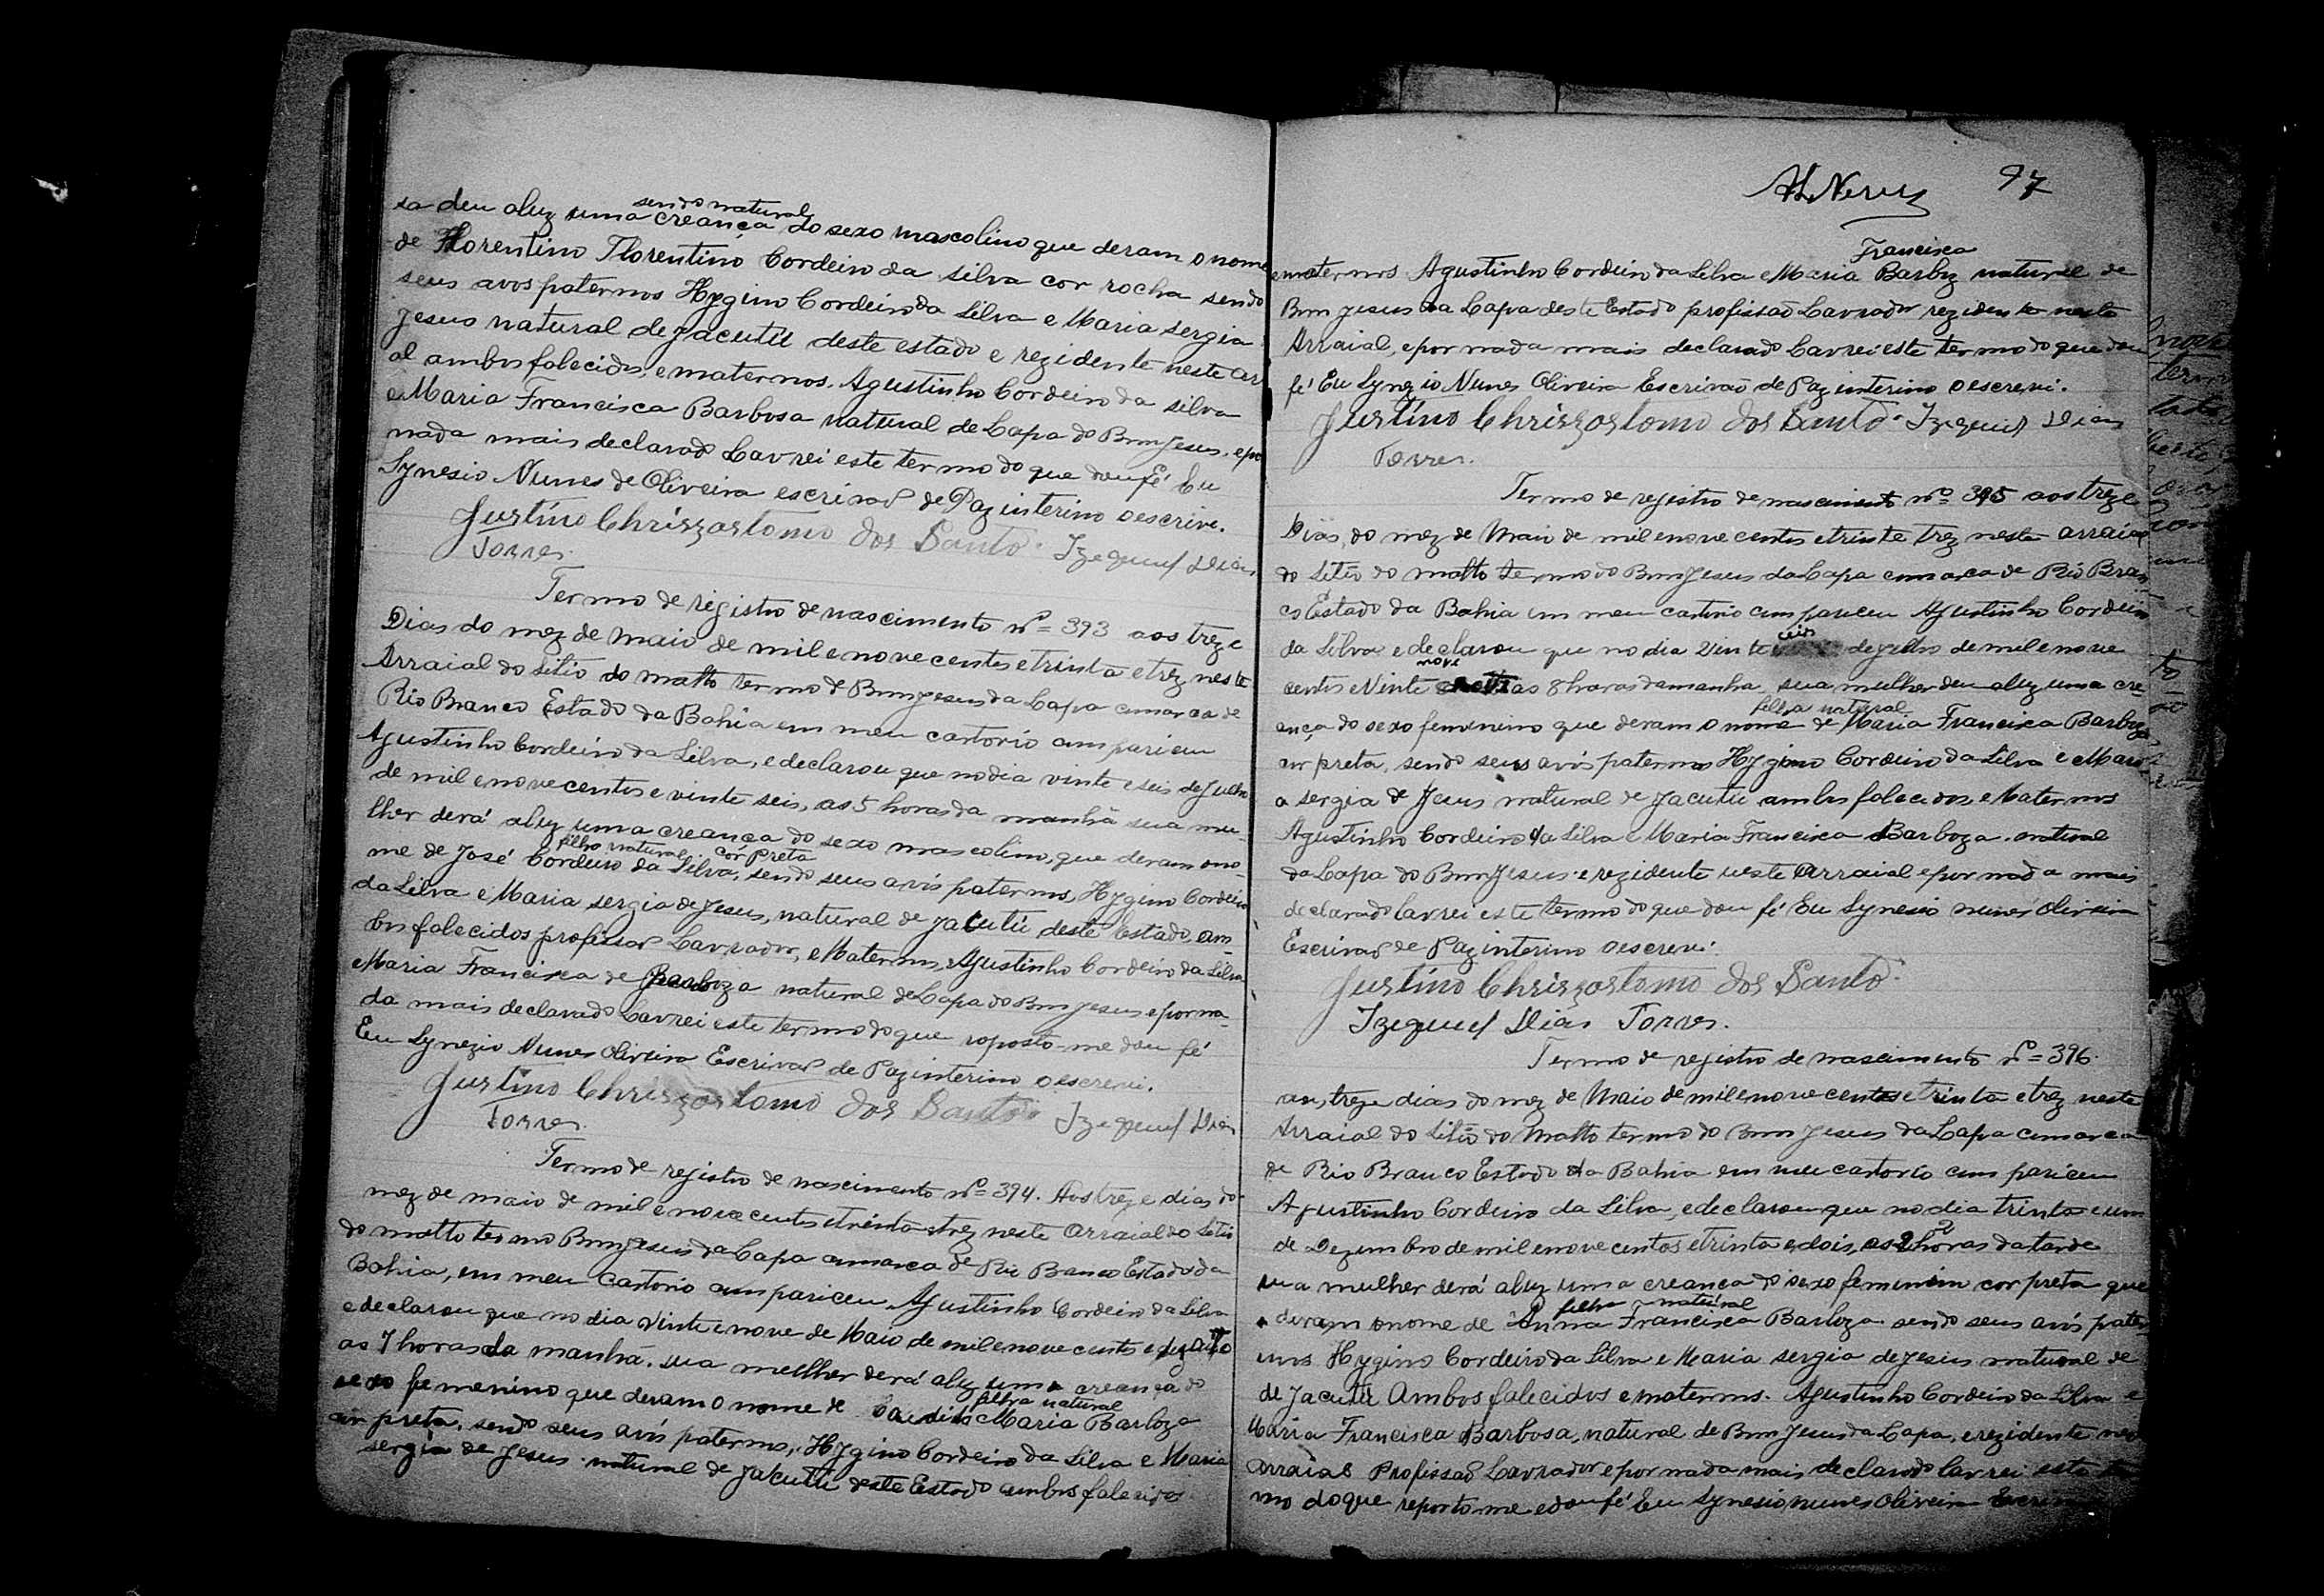 sa deu aluz uma creança do sexo mascolino que deram o nome
sendo natural
de Florentino Florentino Cordeiro da silva cor rocha sendo
seus avos paternos Hygino Cordeiro da Silva e Maria sergia
Jesus natural de Jacutú deste estado e rezidente neste arr
al ambos falecidos, e maternos. Agustinho Cordeiro da silva
e Maria Francisca Barbosa natural de Lapa do Bom Jesus, e por
nada mais declarado Lavrei este termo do que dou fé Eu
Synesio Nunes de Oliveira escrivaõ de Paz interino o escrivi.
Justino Chriszostomo dos Santo. Izequiel Dias
Torres.
Termo de registro de nascimento nº= 393 aos treze
Dias do mez de Maio de mil e nove centos e trinta e trez neste
Arraial do Sitio do matto termo de Bom Jesus da Lapa comarca de
Rio Branco Estado da Bahia em meu cartorio compariceu
Agustinho Cordeiro da Silva, e declarou que no dia vinte e seis de Julho
de mil e nove centos e vinte seis, as 5 horas da manhã sua mu-
lher derá aluz uma creança do sexo mascolino, que deram o no-
filho natural cór preta
me de José Cordeiro da Silva, sendo seus avós paternos, Hygino Cordeiro
da Silva e Maria sergia de Jesus, natural de Jacutú deste Estado am-
bos falecidos profissaõ Lavrador, e Maternos, Agustinho Cordeiro da Silva
e Maria Francisca de Barboza natural de Lapa do Bom Jesus e por na-
da mais declarado Lavrei este termo do que roposto-me dou fé
Eu Synezio Nunes Oliveira Escrivaõ de Paz interino o escrevi.
Justino Chriszostomo dos Santo. Izequiel Dias
Torres.
Termo de registro de nascimento nº= 394. Aos treze dias do
mez de maio de mil e nove centos e trinta e trez neste Arraial do Sitio
do matto termo Bom Jesus da Lapa comarca de Rio Branco Estado da
Bahia, em meu Cartorio compariceu Agustinho Cordeiro da Silva
e declarou que no dia vinte e nove de Maio de mil e nove centos e
as 7 horas da manhã. sua mullher derá aluz uma creança do
sexo femenino que deram o nome de Maria Barboza
filha natural
cor preta, sendo seus avós paternos, Hygino Cordeiro da Silva e Maria
sergia de Jesus natural de Jacutú deste Estado ambos falecidos
97
Francisca
ematernos Agustinho Cordeiro da Silva e Maria Barboz natural de
Bom Jesus da Lapa deste Estado profissaõ Lavrador rezidente nesta
Arraial, e por nada mais declarado Lavrei este termo do que dou
fé Eu Synezio Nunes Oliveira Escrivaõ de Paz interino o escrevi.
Justino Chriszostomo dos Santo. Izequiel Dias
Torres.
Termo de registro de nascimento nº= 395 aos treze
Dias, do mez de Maio de mil e nove centos e trinte trez nesta arraial
do Sitio do matto termo do Bom Jesus da Lapa comarca de Rio Bran-
co Estado da Bahia em meu cartorio compareceu Agustinho Cordeiro
da Silva e declarou que no dia vinte de Julho de mil e nove
ceis
centos e Vinte as 8 horas da manha sua mulher deu aluz uma cre-
nove
ança do sexo femenino que deram o nome de Maria Francisca Barboza
filha natural
cor preta, sendo seus avós paternos Hygino Cordeiro da Silva e Mari
a sergia de Jesus natural de Jacutú ambos falecidos, e Maternos
Agustinho Cordeiro da Silva e Maria Francisca Barboza natural
da Lapa do Bom Jesus e rezidente neste Arraial e por nada mais
declarado lavrei este termo do que dou fé Eu Synesio nunes Oliveira
Escrivaõ de Paz interino o escrevi.
Justino Chriszostomo dos Santo.
Izequiel Dias Torres.
Termo de registro de nascimento nº= 396.
aos, treze dias do mez de Maio de mil e nove centos e trinta e trez neste
Arraial do Sitio do Matto termo do Bom Jesus da Lapa comarca
de Rio Branco Estado da Bahia em meu cartorio compariceu
Agustinho Cordeiro da Silva, e declarou que no dia trinta e um
de Dezembro de mil e nove centos e trinta e dois, as 2 horas da tarde
sua mulher derá aluz uma creança do sexo feminino cor preta que
filha natural
deram o nome de Anna Francisca Barboza sendo seus avós pater
nos Hygino Cordeiro da Silva e Maria sergia de Jesus natural de
de Jacutú Ambos falecidos e maternos. Agustinho Cordeiro da Silva e
Maria Francisca Barbosa, natural de Bom Jesus da Lapa, e rezidente nes
arraial Profissaõ Lavrador e por nada mais declarado lavrei este
mo do que reporto-me e dou fé Eu Synesio nunes Oliveira